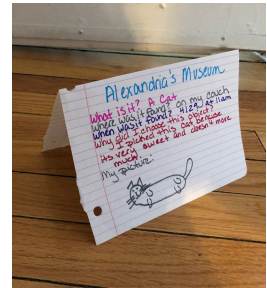 Alexandria's Museum
What is it? A Cat
where was it found? on my couch
when was it found? 4/29 at 11am
Why did I choose this object?
I picked this cat because
its very sweet and doesn't move
much.
My picture: